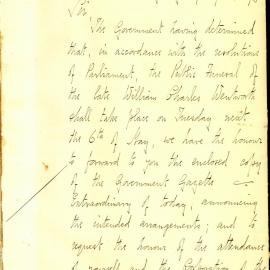 Sir,
The Government having determined
that, in accordance with the resolutions
of Parliament, the Public Funeral of
the late William Charles Wentworth
shall take place on Tuesday next
the 6th of May, we have the honour
to forward to you the enclosed copy
of the Government Gazette
Extraordinary of today, announcing
the intended arrangements; and to
request the honour of the attendance
of yourself and the Corporation of the